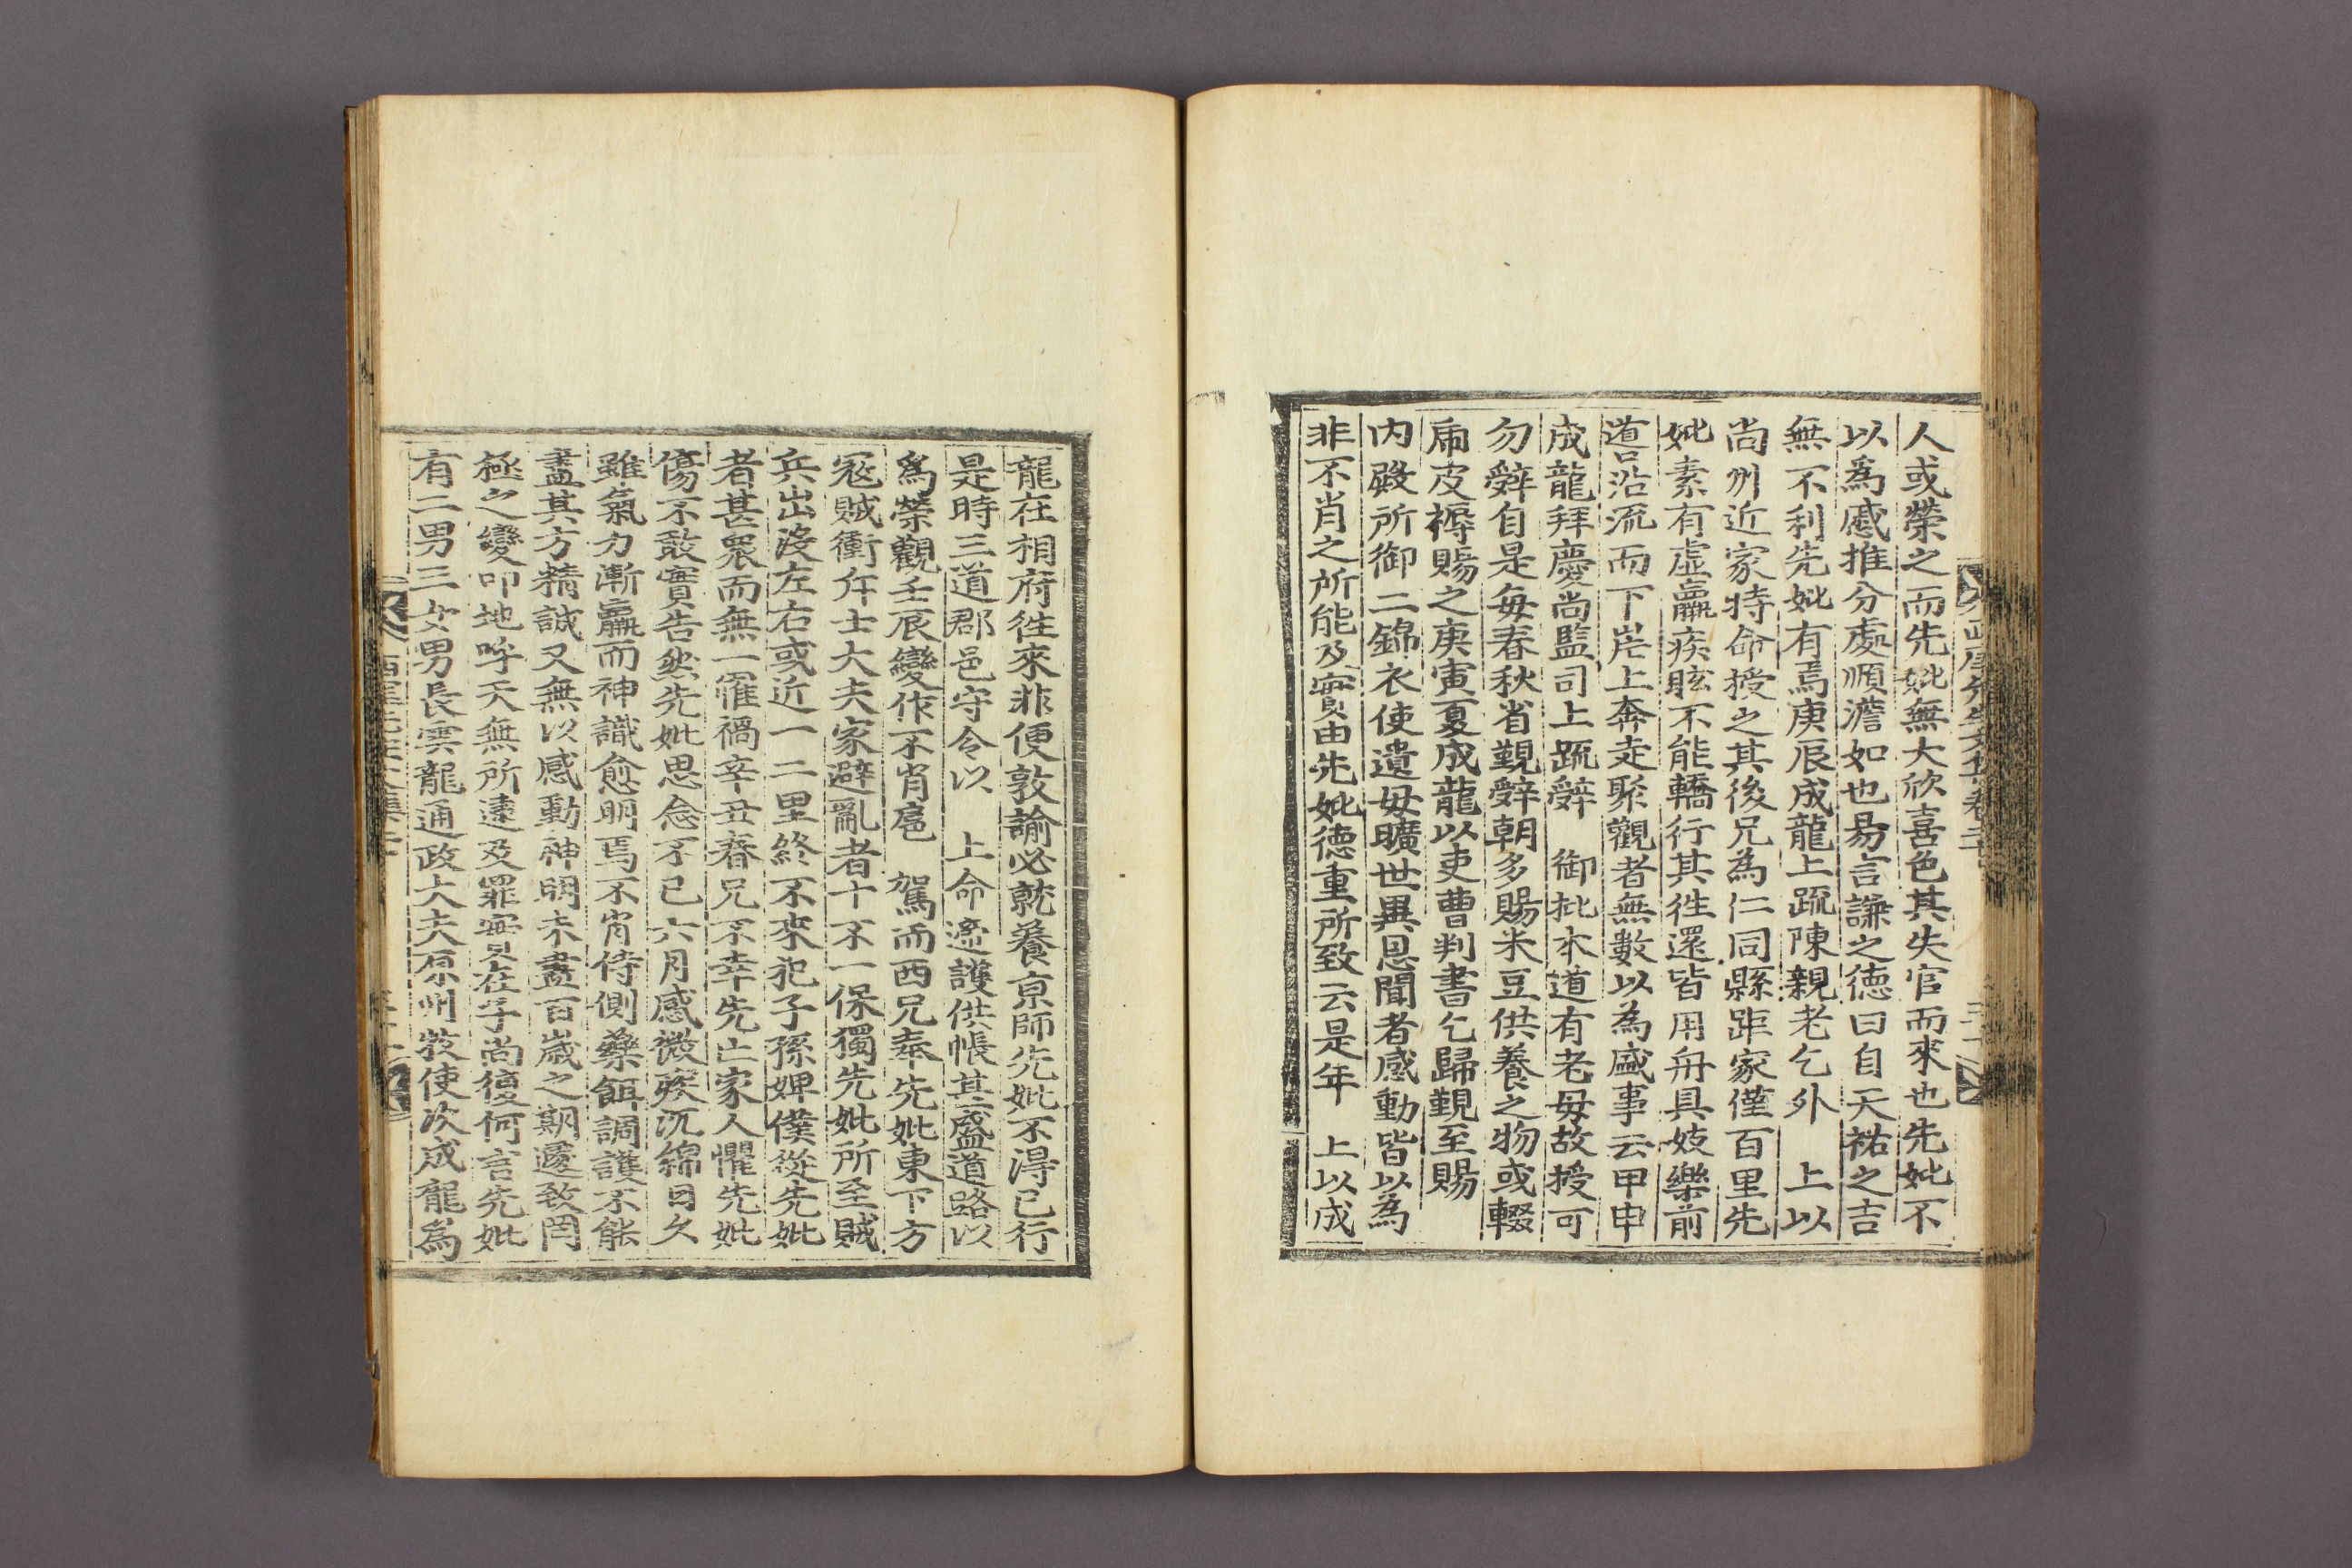 人或榮之而先妣無大欣喜色其失官而來也先妣不
以爲慼推分處順澹如也易言謙之德曰自天祐之吉
無不利先妣有焉庚辰成龍上疏陳親老乞外　上以
尚州近家特命授之其後兄為仁同縣距家僅百里先
妣素有虛羸疾眩不能轎行其徃還皆用舟具妓樂前
道沿流而下岸上奔走聚觀者無數以為盛事云甲申
成龍拜慶尚監司上疏辭　御批本道有老母故授可
勿辭自是每春秋省覲辭朝多賜米豆供養之物或輟
內殿所御二錦衣使遺母曠世異恩聞者感動皆以為
非不肖之所能及實由先妣德重所致云是年　上以成
龍在相府徃來非便敦諭必就養京師先妣不得已行
是時三道郡邑守令以　上命遞護供帳甚盛道路以
爲榮觀壬辰變作不肖扈　駕而西兄奉先妣東下方
冦賊衝斥士大夫家避亂者十不一保獨先妣所至賊
兵出沒左右或近一二里終不來犯子孫婢僕從先妣
者甚衆而無一罹禍辛丑春兄不幸先亡家人懼先妣
傷不敢實告然先妣思念不已六月感微疾沉綿日久
雖氣力漸羸而神識愈明焉不肖侍側藥餌調護不能
盡其方精誠又無以感動神明未盡百歲之期遽致罔
極之變叩地呼天無所逮及罪實在子尚復何言先妣
有二男三女男長雲龍通政大夫原州牧使次成龍爲